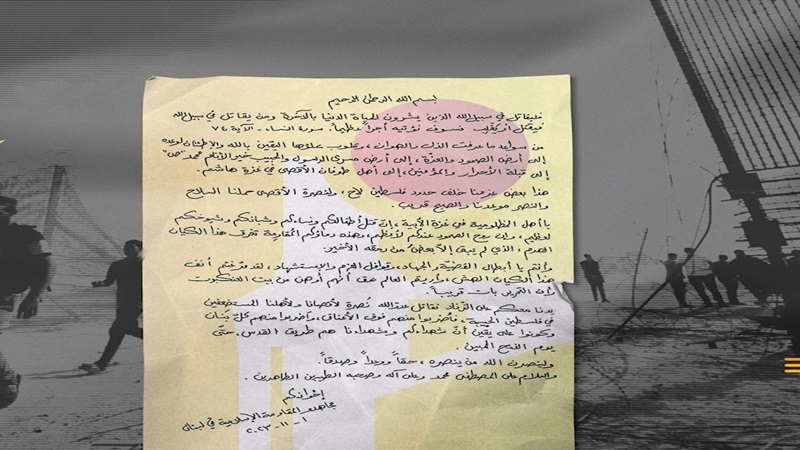 بسم الله الرحمن الرحيم
فليقاتل في سبيل الله الذين يشرون الحياة الدنيا بالآخرة ومن يقاتل في سبيل الله
فيقتل أو يغلب فسوف نؤتيه أجراً عظيماً. سورة النساء - الآية ٧٤
من سواعد ما عرفت الذل والهوان، وقلوب ملؤها اليقين بالله والإطمئنان لوعده
إلى أرض الصمود والعزّة، إلى أرض مسرى الرسول والحبيب خير الأنام محمد "ص"
إلى قبلة الأحرار والمؤمنين، إلى أهل طوفان الأقصى في غزة هاشم.
هذا بعض عزمنا خلف حدود فلسطين لاح، ولنصرة الأقصى حملنا السلاح
والنصر موعدنا والصبح قريب.
يا أهل المظلومية في غزة الأبية، إن قتل أطفالكم ونساءكم وشبانكم وشيوخكم
لعظيم، وإن ريح الصمود عندكم لأعظم، وهذه دماؤكم القانية تغرق هذا الكيان
الهرم، الذي لم يبق إلا بعض من رمقه الأخير.
وأنتم يا أبطال القضيّة والجهاد، وقوافل العزم والإستشهاد، لقد مرّغتم أنف
هذا الكيان الهش، وأريتم العالم حق أنهم أوهن من بيت العنكبوت
وأن التحرير بات قريباً.
يدنا معكم على الزّناد نقاتل عدوّ الله نُصرةً لأقصانا ولأهلنا المستضعفين
في فلسطين الحبيبة، فأضربوا منهم فوق الأعناق، وأضربوا منهم كلّ بنان
وكونوا على يقين أنّ شهداءكم وشهداءنا هم طريق القدس، حتّى
يوم الفتح المبين.
ولينصرن الله من ينصره، حقاً ووعداً وصدقاً.
والسلام على المصطفى محمد وعلى آله وصحبه الطيبين الطاهرين.
إخوانكم
مجاهدو المقاومة الإسلامية في لبنان
١ - ١١ - ٢٠٢٣